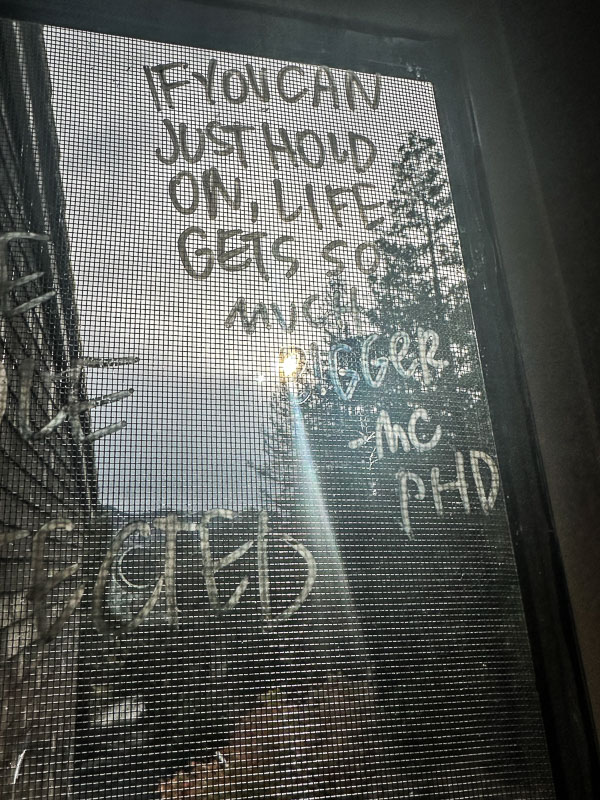 IF YOU CAN
JUST HOLD
ON, LIFE
GETS SO
MUCH
BIGGER
-MC
PHD
ECTED